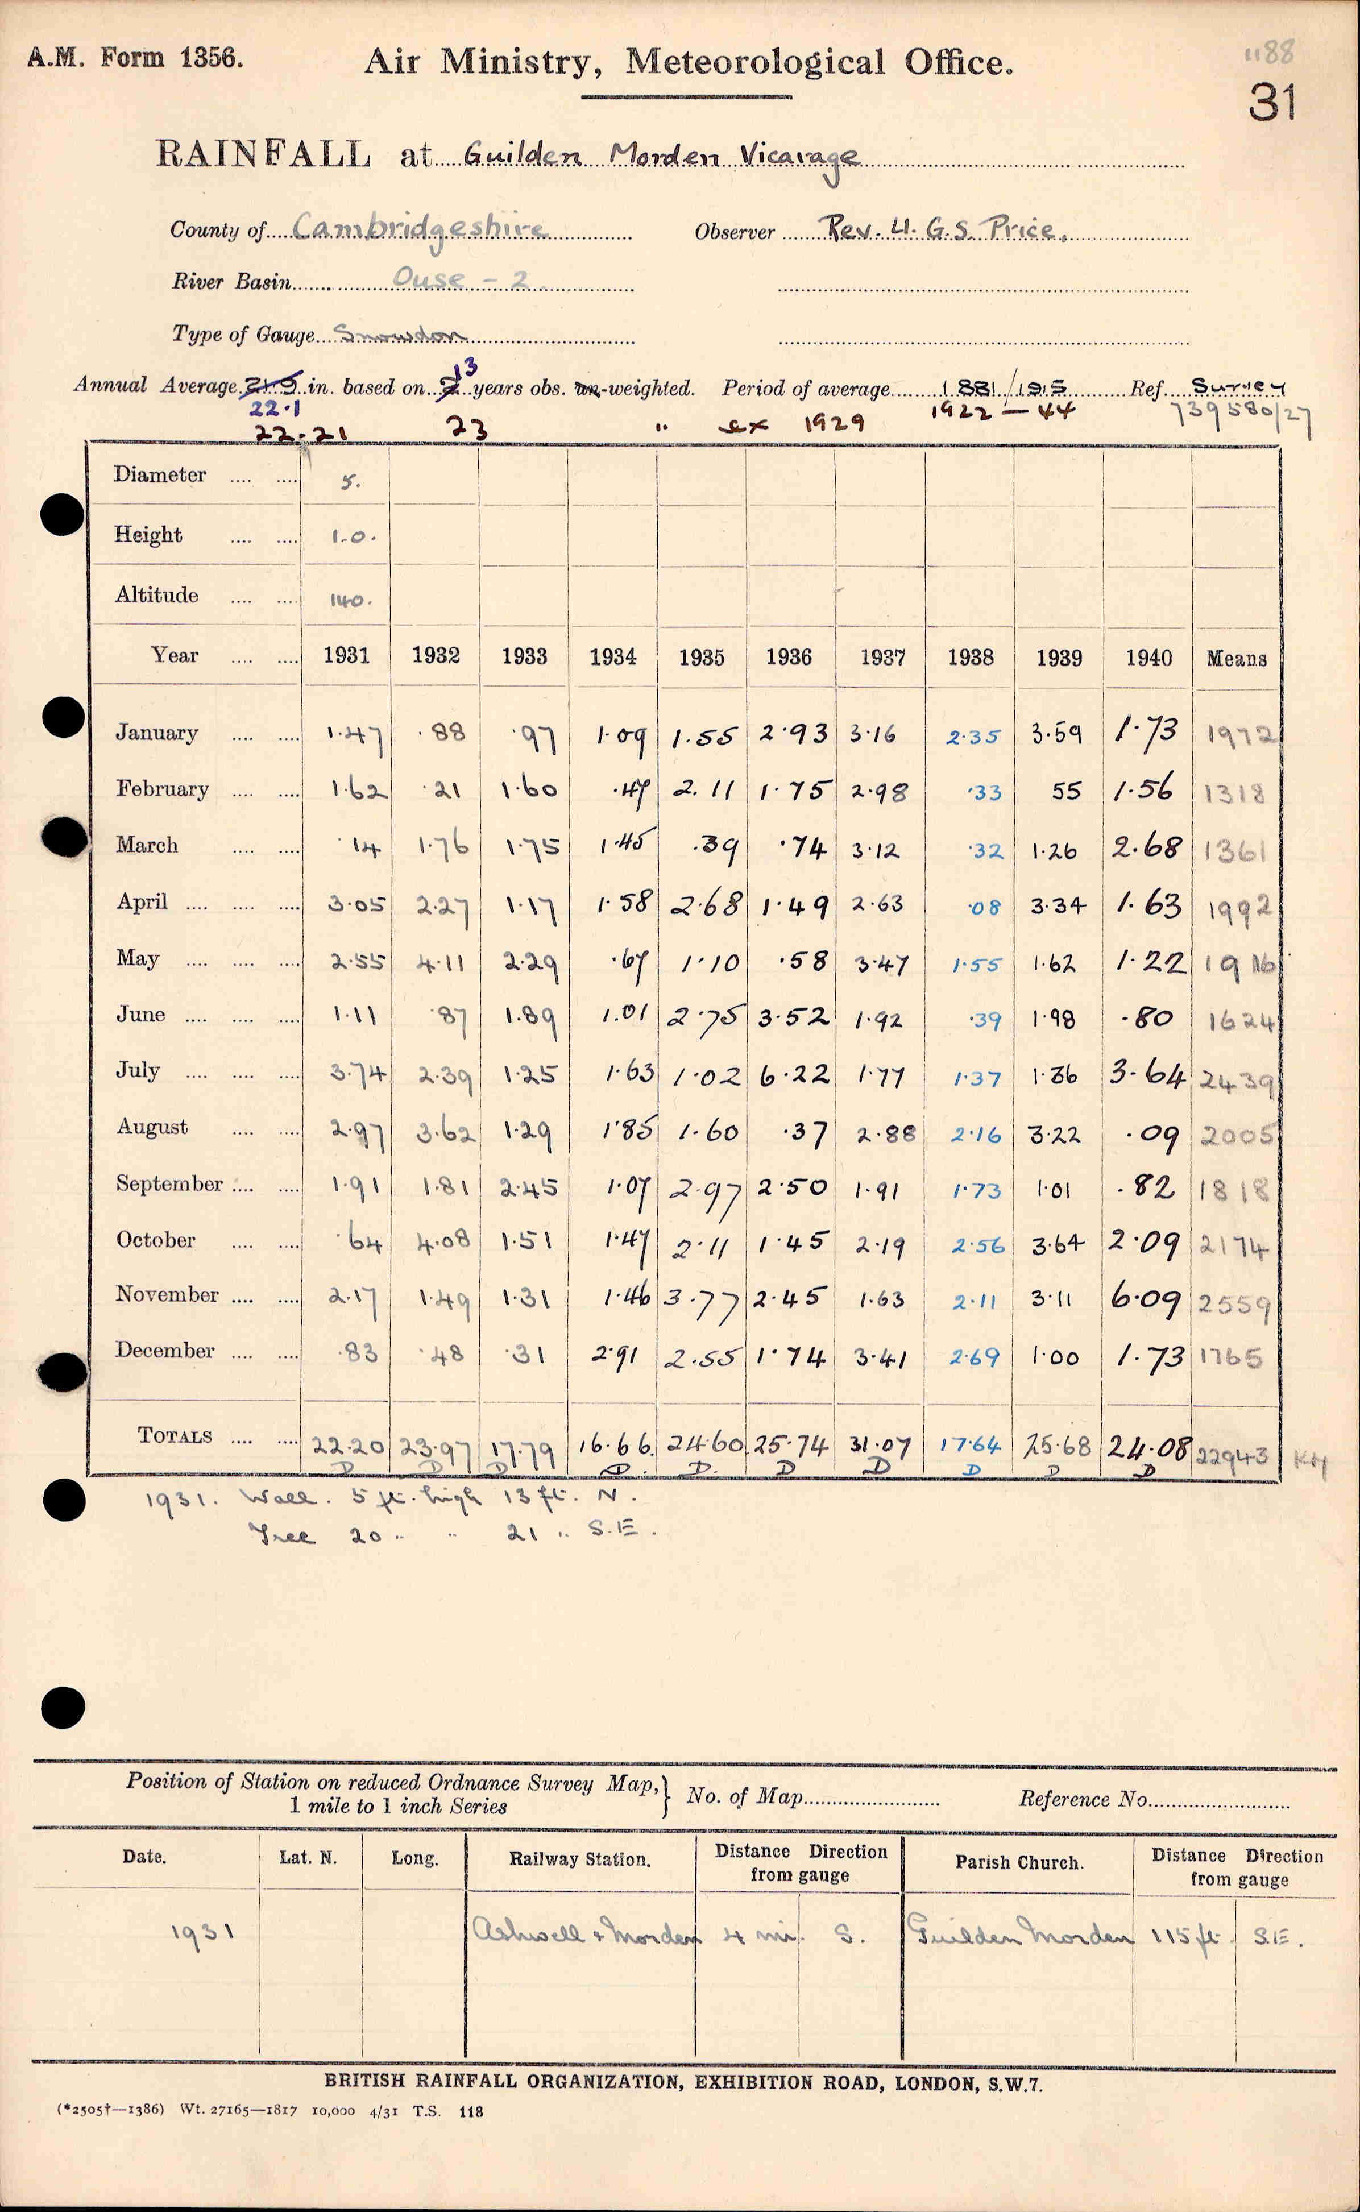 A.M. Form 1356.
Air Ministry, Meteorological Office.
1188
31
RAINFALL at Guilden Morden Vicarage
County of Cambridgeshire Observer Rev. H. G. S. Price.
River Basin Ouse - 2
Type of Gauge Snowdon
13
Annual Average 21.9 in. based on years obs. un-weighted. Period of average 1881/1915 Ref. Survey
22.1 1922 - 44 739580/27
22.21 23 " ex 1929
Diameter 5.
Height 1.0.
Altitude 140.
Year 1931 1932 1933 1934 1935 1936 1937 1938 1939 1940 Means
January 1.47 .88 .97 1.09 1.55 2.93 3.16 2.35 3.59 1.73 1972
February 1.62 .21 1.60 .47 2.11 1.75 2.98 .33 55 1.56 1318
March .14 1.76 1.75 1.45 .39 .74 3.12 .32 1.26 2.68 1361
April 3.05 2.27 1.17 1.58 2.68 1.49 2.63 .08 3.34 1.63 1992
May 2.55 4.11 2.29 .67 1.10 .58 3.47 1.55 1.62 1.22 1916
June 1.11 .87 1.89 1.01 2.75 3.52 1.92 .39 1.98 .80 1624
July 3.74 2.39 1.25 1.63 1.02 6.22 1.77 1.37 1.36 3.64 2439
August 2.97 3.62 1.29 1.85 1.60 .37 2.88 2.16 3.22 .09 2005
September 1.91 1.81 2.45 1.07 2.97 2.50 1.91 1.73 1.01 .82 1818
October .64 4.08 1.51 1.47 2.11 1.45 2.19 2.56 3.64 2.09 2174
November 2.17 1.49 1.31 1.46 3.77 2.45 1.63 2.11 3.11 6.09 2559
December .83 .48 .31 2.91 2.55 1.74 3.41 2.69 1.00 1.73 1765
TOTALS 22.20 23.97 17.79 16.66 24.60 25.74 31.07 17.64 25.68 24.08 22943
D D D D D D D D D D
1931. Wall. 5 ft. high 13 ft. N.
Tree 20 " " 21 " S.E.
Position of Station on reduced Ordnance Survey Map, } No. of Map Reference No.
1 mile to 1 inch Series
Date. Lat. N. Long. Railway Station. Distance Direction from gauge Parish Church. Distance Direction from gauge
1931 Ashwell & Morden 4 mi. S. Guilden Morden 115 ft. S.E.
BRITISH RAINFALL ORGANIZATION, EXHIBITION ROAD, LONDON, S.W.7.
(*2505†—1386) Wt. 27165—1817 10,000 4/31 T.S. 118